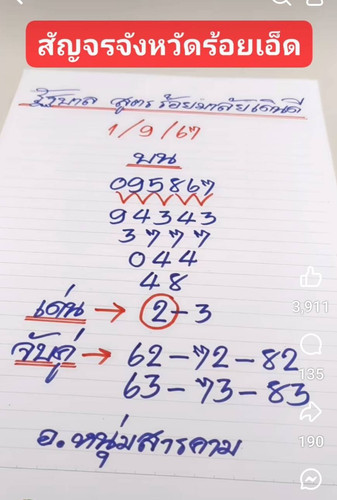 สัญจรจังหวัดร้อยเอ็ด
รัฐบาล สูตร ร้อยมาลัยเดินดี
1/9/67
บน
095867
94343
3777
044
48
เด่น → 2-3
จับคู่ → 62-72-82
63-73-83
อ.หนุ่มสารคาม
3,911
135
190